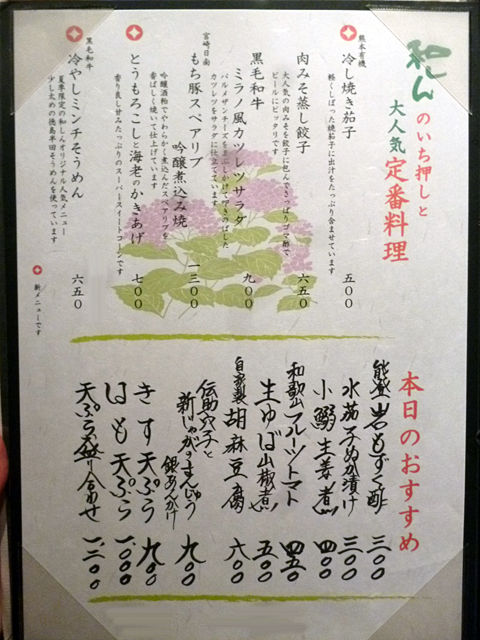 和しんのいち押しと
大人気定番料理
熊本有機
冷し焼き茄子
軽くしぼった焼茄子に出汁をたっぷり含ませています
五〇〇
肉みそ蒸し餃子
大人気の肉みそを餃子に包んでさっぱりゴマ酢で
ビールにピッタリです
六五〇
黒毛和牛
ミラノ風カツレツサラダ
カツレツをサラダに仕立てています
九〇〇
宮崎日南
もち豚スペアリブ
吟醸煮込み焼
吟醸酒粕でやわらかく煮込んだスペアリブを
香ばしく焼いて仕上げています
一三〇〇
とうもろこしと海老のかきあげ
香り良し甘みたっぷりのスーパースイートコーンです
七〇〇
黒毛和牛
冷やしミンチそうめん
夏季限定の和しんオリジナル人気メニュー
少し太めの徳島半田そうめんを使っています
六五〇
新メニューです
本日のおすすめ
能登岩もずく酢 三〇〇
水茄子ぬか漬け 三〇〇
小鰯生姜煮 四〇〇
和歌山フルーツトマト 四五〇
生ゆば山椒煮 五〇〇
自家製胡麻豆腐 六〇〇
伝助穴子と
新じゃがのまんじゅう
銀あんかけ 九〇〇
きす天ぷら 九〇〇
はも天ぷら 一、〇〇〇
天ぷら盛り合わせ 一、二〇〇